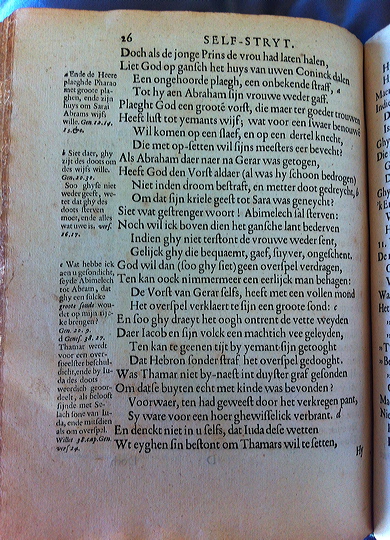 26 SELF-STRYT.
Doch als de jonge Prins de vrou had laten halen,
Liet God op gansch het huys van uwen Coninck dalen
Een ongehoorde plaegh, een onbekende straff, a
Tot hy aen Abraham sijn vrouwe weder gaff.
Plaeght God een groote vorst, die maer ter goeder trouwen
Heeft lust tot yemants wijf; wat voor een swaer benouwen
Wil komen op een slaef, en op een dertel knecht,
Die met op-setten wil sijns meesters eer bevecht?
Als Abraham daer naer na Gerar was getogen,
Heeft God den Vorst aldaer (al was hy schoon bedrogen)
Niet inden droom bestraft, en metter doot gedreycht, b
Om dat sijn kriele geest tot Sara was geneycht?
Siet wat gestrenger woort! Abimelech sal sterven:
Noch wil ick boven dien het gansche lant bederven
Indien ghy niet terstont de vrouwe weder sent,
Gelijck ghy die bequaemt, gaef, suyver, ongeschent.
God wil dan (soo ghy siet) geen overspel verdragen,
Ten kan oock nimmermeer een eerlijck man behagen:
De Vorst van Gerar selfs, heeft met een vollen mond
Het overspel verklaert te sijn een groote sond: c
En soo ghy draeyt het oogh ontrent de vette weyden
Daer Jacob en sijn volck een machtich vee geleyden,
Ten kan te geenen tijt by yemant sijn getooght
Dat Hebron sonder straf het overspel gedooght.
Was Thamar niet by-naest int duyster graf gesonden
Om datse buyten echt met kinde was bevonden?
Voorwaer, ten had geweest door het verkregen pant,
Sy ware voor een hoer ghewisselick verbrant. d
En denckt niet in u selfs, dat Iuda dese wetten
Wt eyghen sin bestont om Thamars wil te setten,
Hy
a Ende de Heere
plaeghde Pharao
met groote pla-
ghen, ende zijn
huys om Sarai
Abrams wijfs
wille. Gen. 12.14.
b Siet daer, ghy
zijt des doots om
des wijfs wille.
Gen. 20. 30.
Soo ghyse niet
weder geeft, we-
tet dat ghy des
doots sterven
moet, ende alles
wat uwe is. vers.
16.17.
c Wat hebbe ick
aen u gesondicht,
seyde Abimelech
tot Abram, dat
ghy een sulcke
groote sonde wou-
det op mijn rijc-
ke brengen?
Gen. 20. 9.
d Genes. 38. 17.
Thamar werdt
voor een over-
speelster beschul-
dicht, ende by Iu-
da des doots
weerdich geoor-
deelt, als belooft
sijnde met Se-
lach sone van Iu-
da, ende mitsdien
als om overspel.
Willet 38. cap. Gen.
vers 24.